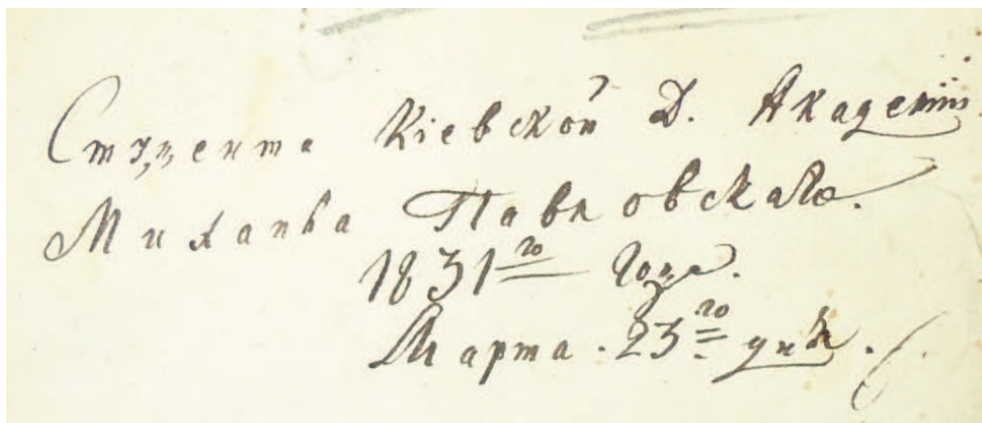 Студента Кіевской Д. Академіи
Михаила Павловскаго.
1831го Года.
Марта. 23го дня.